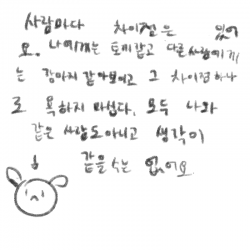 사람마다 차이점은 있어
요. 나에게는 토끼같고 다른 사람에게
는 강아지 같아보이고 그 차이점 하나
로 욕하지 마십다. 모두 나와
같은 사람도 아니고 생각이
같을 수는 없어요